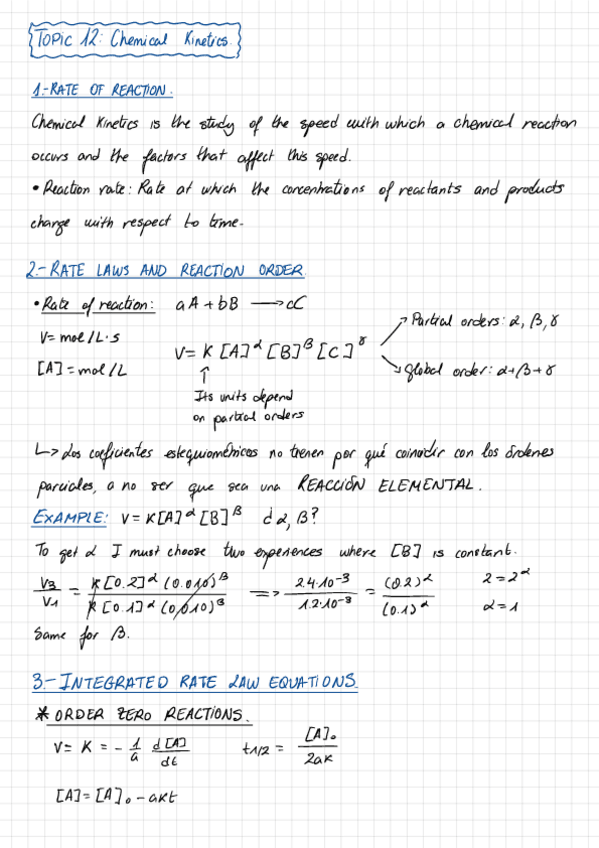 TOPIC 12: Chemical Kinetics.
1.-RATE OF REACTION.
Chemical Kinetics is the study of the speed with which a chemical reaction
occurs and the factors that affect this speed.
• Reaction rate: Rate at which the concentrations of reactants and products
change with respect to time.
2.- RATE LAWS AND REACTION ORDER.
• Rate of reaction: aA + bB → cC
V= mol/L·s
[A] = mol/L
V= K [A]^α [B]^β [C]^γ
Partial orders: α, β, γ
Global order: α+β+γ
Its units depend
on partial orders
↳ Los coeficientes estequiométricos no tienen por qué coincidir con los órdenes
parciales, a no ser que sea una REACCIÓN ELEMENTAL.
EXAMPLE: V= K[A]^α [B]^β ¿α, β?
To get α I must choose two experiences where [B] is constant.
V3/V1 = K[0.2]^α (0.010)^β / K[0.1]^α (0,010)^β => 2.4·10^-3 / 1.2·10^-3 = (0.2)^α / (0.1)^α 2=2^α
α=1
Same for β.
3.- INTEGRATED RATE LAW EQUATIONS.
* ORDER ZERO REACTIONS.
V= K = - 1/a d[A]/dt t1/2 = [A]₀ / 2aK
[A] = [A]₀ - aKt